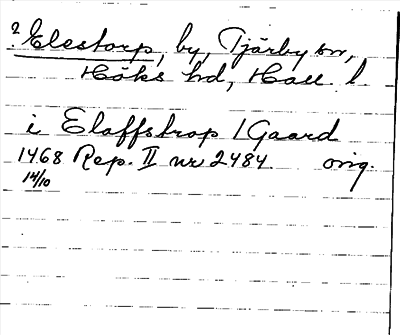 ? Elestorp, by, Tjärby sn,
Höks hd, Hall. l.
i Elaffstrop 1 Gaard
1468 Rep. II nr 2484 orig.
14/10